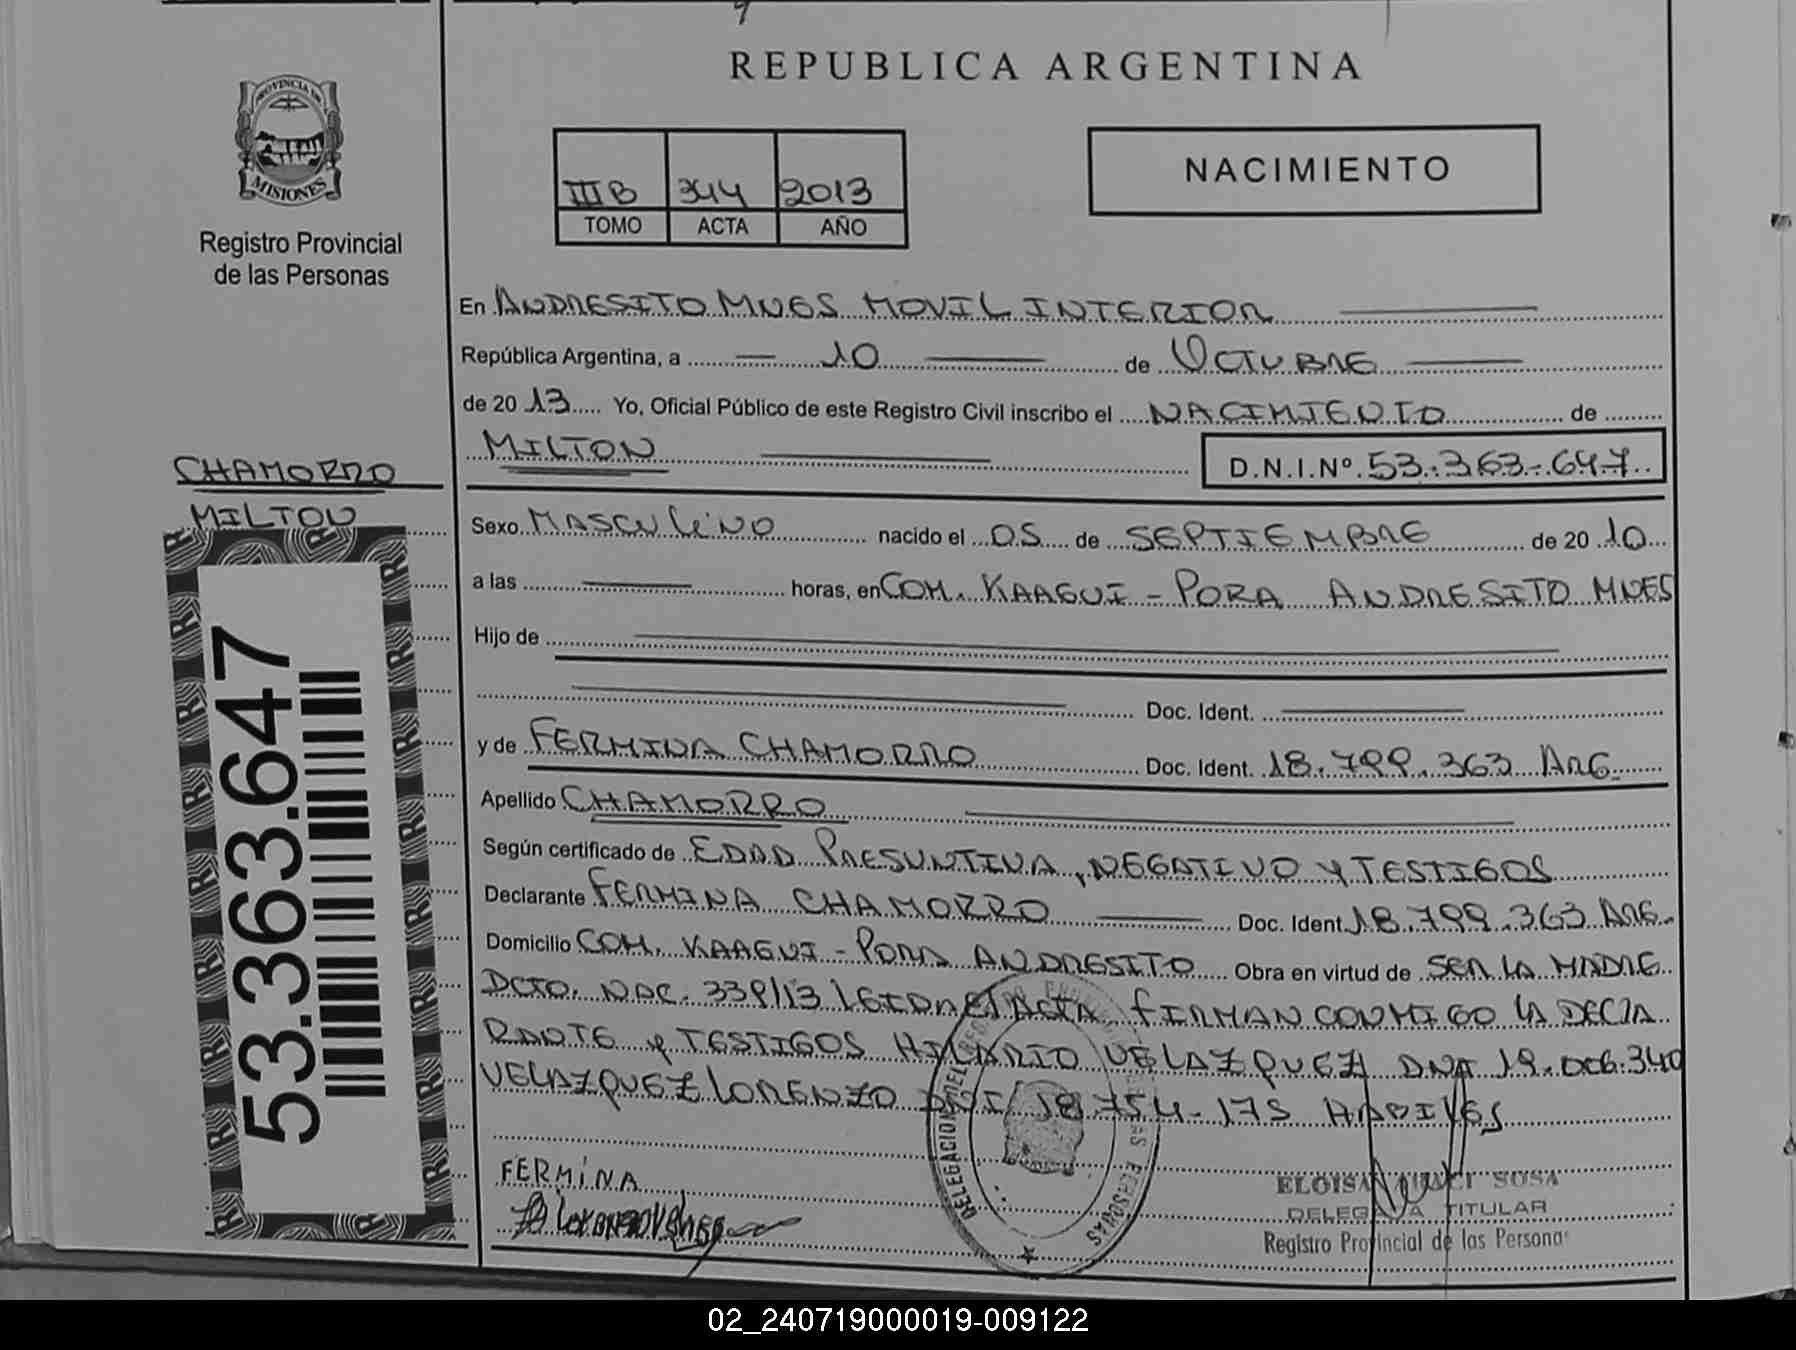 REPUBLICA ARGENTINA
PROVINCIA DE
MISIONES
Registro Provincial
de las Personas
NACIMIENTO
IIIB 344 2013
TOMO ACTA AÑO
En ANDRESITO MNES MOVIL INTERIOR
República Argentina, a 10 de OCTUBRE
de 20 13 Yo, Oficial Público de este Registro Civil inscribo el NACIMIENTO de
MILTON D.N.I.Nº 53.363.647
CHAMORRO
MILTON
53.363.647
Sexo MASCULINO nacido el 05 de SEPTIEMBRE de 20 10
a las horas, en COM. KAAGUI - PORA ANDRESITO MNES
Hijo de
Doc. Ident.
y de FERMINA CHAMORRO Doc. Ident. 18.799.363 ARG.
Apellido CHAMORRO
Según certificado de EDAD PRESUNTIVA, NEGATIVO Y TESTIGOS
Declarante FERMINA CHAMORRO Doc. Ident. 18.799.363 ARG.
Domicilio COM. KAAGUI - PORA ANDRESITO Obra en virtud de SER LA MADRE
DCTO. NAC. 339/13 LEIDA EL ACTA FIRMAN CONMIGO LA DECLA
RANTE Y TESTIGOS HILARIO VELAZQUEZ DNI 19.006.340
VELAZQUEZ LORENZO DNI 18.754.175 HABILES
FERMINA
DELEGACION PERSONAS
ELOISA SOSA
DELEGADA TITULAR
Registro Provincial de las Personas
02_240719000019-009122